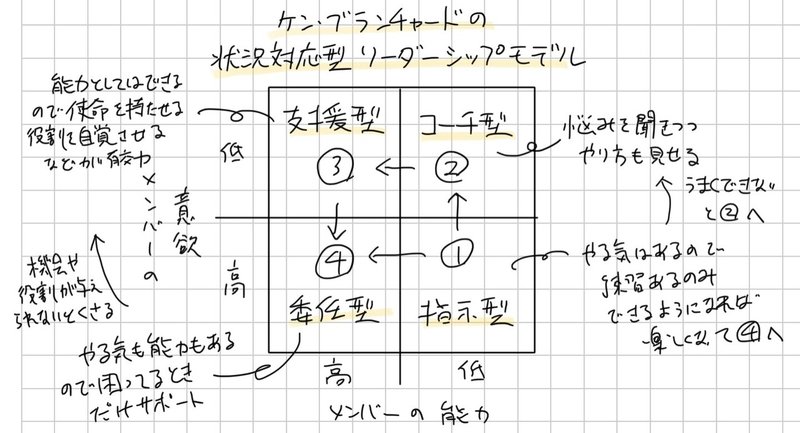 ケン・ブランチャードの
状況対応型リーダーシップモデル
能力としてはできる
ので使命を持たせる
役割を自覚させる
などが有効
支援型
コーチ型
③ ← ②
悩みを聞きつつ
やり方も見せる
うまくできない
と②へ
メンバーの
意欲
低
高
④ ← ①
委任型
指示型
機会や
役割が与え
られないとくさる
やる気はあるので
練習あるのみ
できるようになれば
楽しくなって④へ
やる気も能力もある
ので困ってるとき
だけサポート
高
低
メンバーの能力